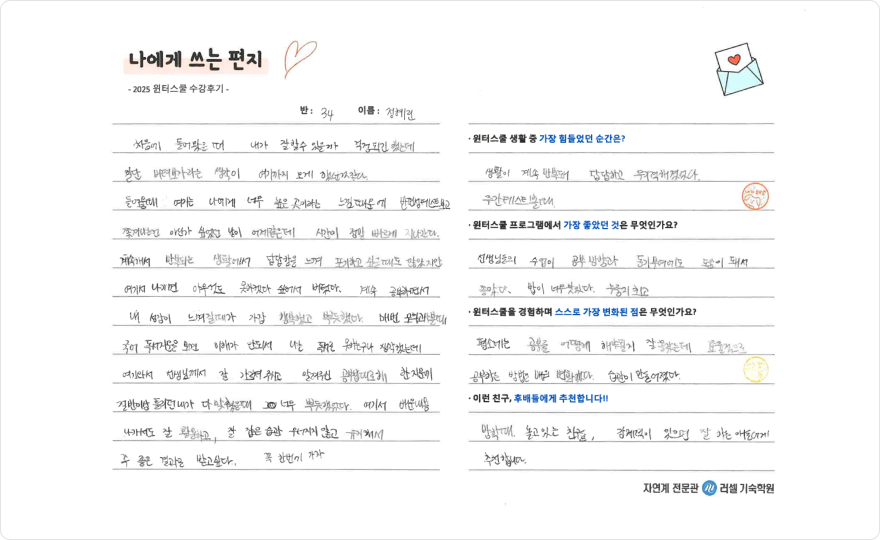 나에게 쓰는 편지
- 2025 윈터스쿨 수강후기 -
반 : 34 이름 :
처음에 들어왔을 때 내가 잘할수 있을까 걱정되긴 했는데
일단 버텨보자라는 생각이 여기까지 오게 한것같다.
들어올때 여기는 나에게 너무 높은 곳이라는 느낌
시간이 정말 빠르게 지나갔다.
계속해서 반복되는 생활에서 답답함을 느껴 포기하고 싶을때도 많았지만
여기서 나가면 아무것도 못하겠다 싶어서 버텼다. 계속 공부하면서
내 성장이 느껴질때가 가장 행복했고 뿌듯했다. 매번 모의고사볼때
국어 독서지문을 보면 이해가 안되서 나는
여기와서 선생님께서 잘 가르쳐 주시고 알려주신 공부법대로해 한지문에
절반이상 틀리던 내가 다 맞았을때 너무 뿌듯했었다. 여기서 배운내용
나가서도 잘 활용하고, 잘 잡은 습관 무너지지 않고 유지해서
꼭 좋은 결과를 받고싶다. 꼭 한번에 가자
· 윈터스쿨 생활 중 가장 힘들었던 순간은?
생활이 계속 반복돼 답답하고 무기력해졌다.
주간테스트볼때
· 윈터스쿨 프로그램에서 가장 좋았던 것은 무엇인가요?
선생님들의 수업이 공부 방향과 동기부여에도 도움이 돼서
좋았다. 밥이 너무맛있다.
· 윈터스쿨을 경험하며 스스로 가장 변화된 점은 무엇인가요?
평소에는 공부를 어떻게 해야할지 잘 몰랐는데 효율적으로
공부하는 방법을 배워 변화했다. 습관이 만들어졌다.
· 이런 친구, 후배들에게 추천합니다!!
방학때 놀고있는 친구들, 경쟁력이 있으면 잘 하는 애들에게
추천합니다.
자연계 전문관 러셀 기숙학원